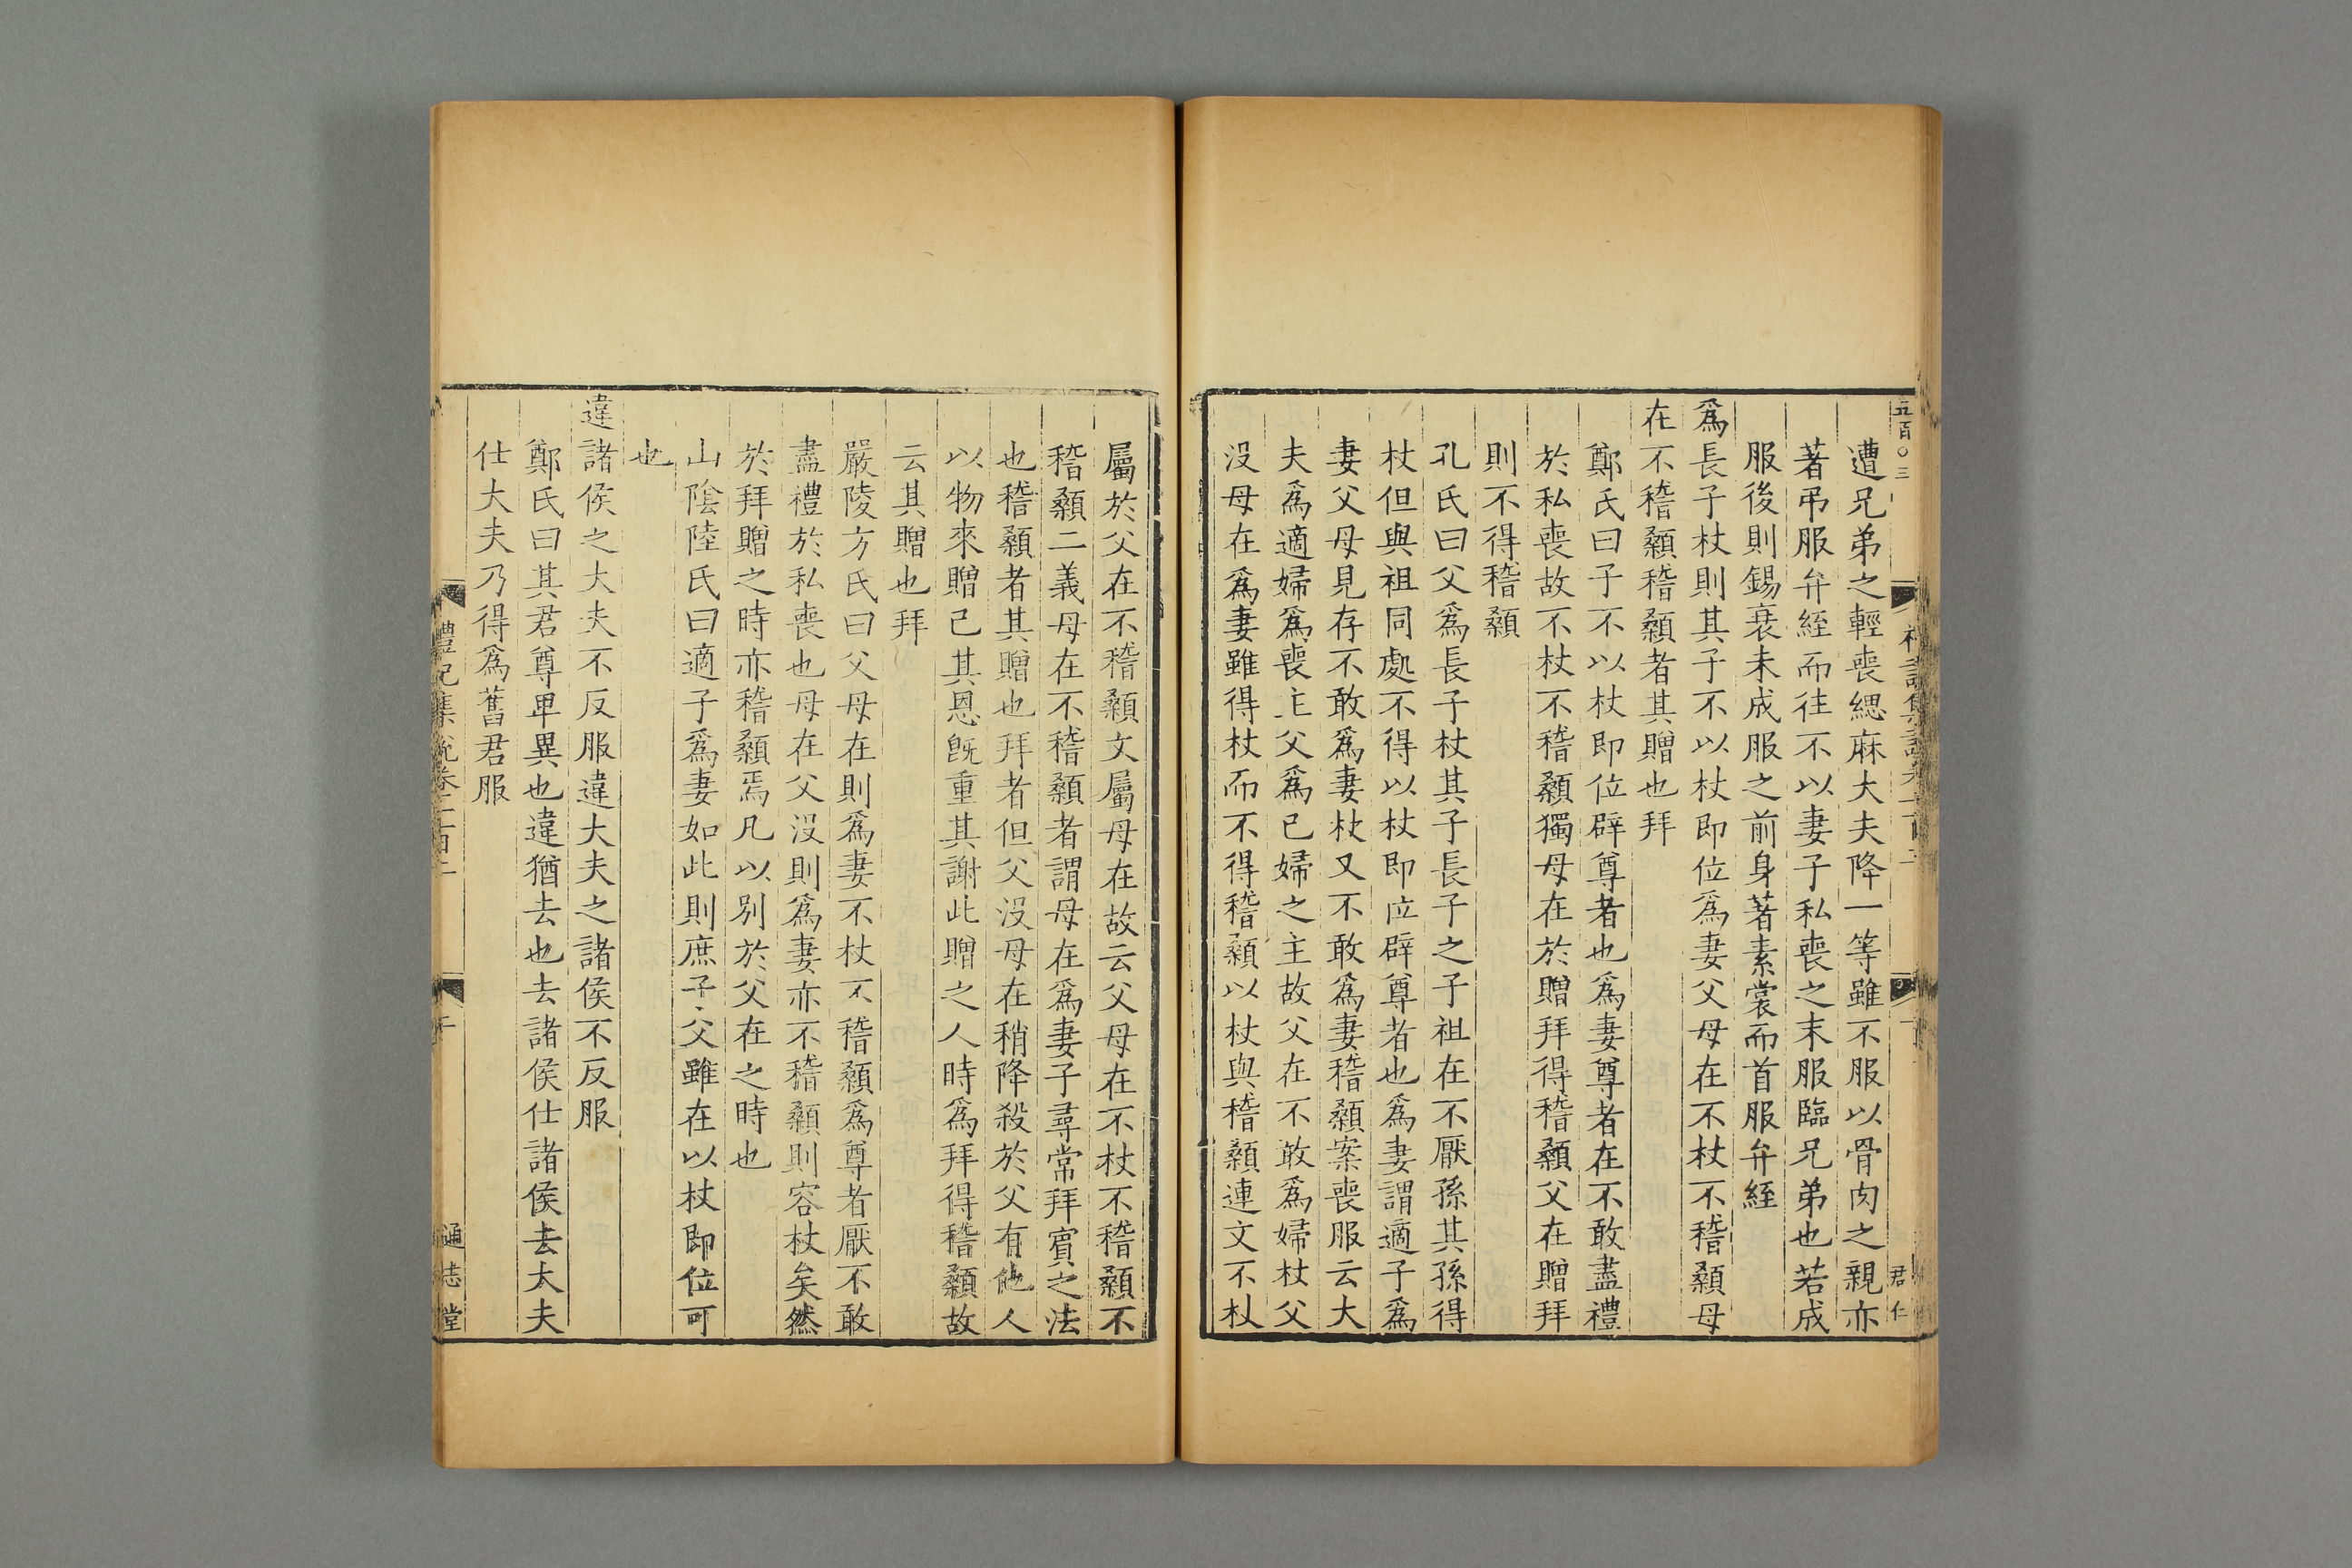 五百〇三
遭兄弟之輕喪緦麻大夫降一等雖不服以骨肉之親亦
著弔服弁絰而往不以妻子私喪之末服臨兄弟也若成
服後則錫衰未成服之前身著素裳而首服弁絰
爲長子杖則其子不以杖即位爲妻父母在不杖不稽顙母
在不稽顙稽顙者其贈也拜
鄭氏曰子不以杖即位辟尊者也爲妻尊者在不敢盡禮
於私喪故不杖不稽顙獨母在於贈拜得稽顙父在贈拜
則不得稽顙
孔氏曰父爲長子杖其子長子之子祖在不厭孫其孫得
杖但與祖同處不得以杖即位辟尊者也爲妻謂適子爲
妻父母見存不敢爲妻杖又不敢爲妻稽顙案喪服云大
夫爲適婦爲喪主父爲已婦之主故父在不敢爲婦杖父
没母在爲妻雖得杖而不得稽顙以杖與稽顙連文不杖
君仁
屬於父在不稽顙文屬母在故云父母在不杖不稽顙不
稽顙二義母在不稽顙者謂母在爲妻子尋常拜賓之法
也稽顙者其贈也拜者但父没母在稍降殺於父有他人
以物來贈己其恩旣重其謝此贈之人時爲拜得稽顙故
云其贈也拜
嚴陵方氏曰父母在則爲妻不杖不稽顙爲尊者厭不敢
盡禮於私喪也母在父没則爲妻亦不稽顙則容杖矣然
於拜贈之時亦稽顙焉凡以別於父在之時也
山陰陸氏曰適子爲妻如此則庶子父雖在以杖即位可
也
違諸侯之大夫不反服違大夫之諸侯不反服
鄭氏曰其君尊卑異也違猶去也去諸侯仕諸侯去大夫
仕大夫乃得爲舊君服
禮記集說卷一百二
通志堂